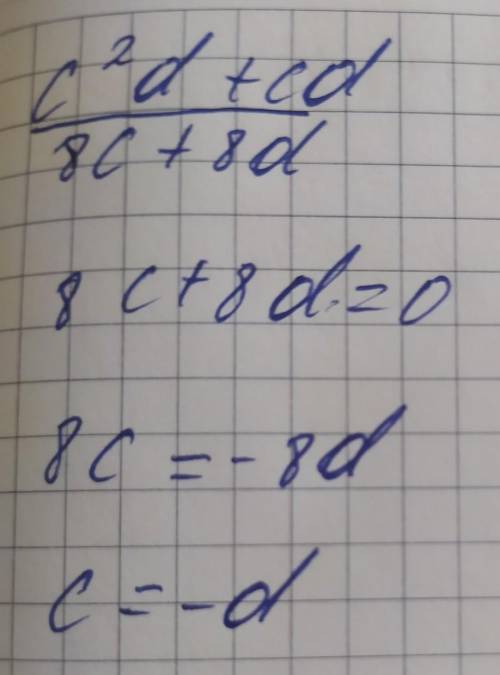 c²d + cd
8c + 8d
8c + 8d = 0
8c = - 8d
c = - d